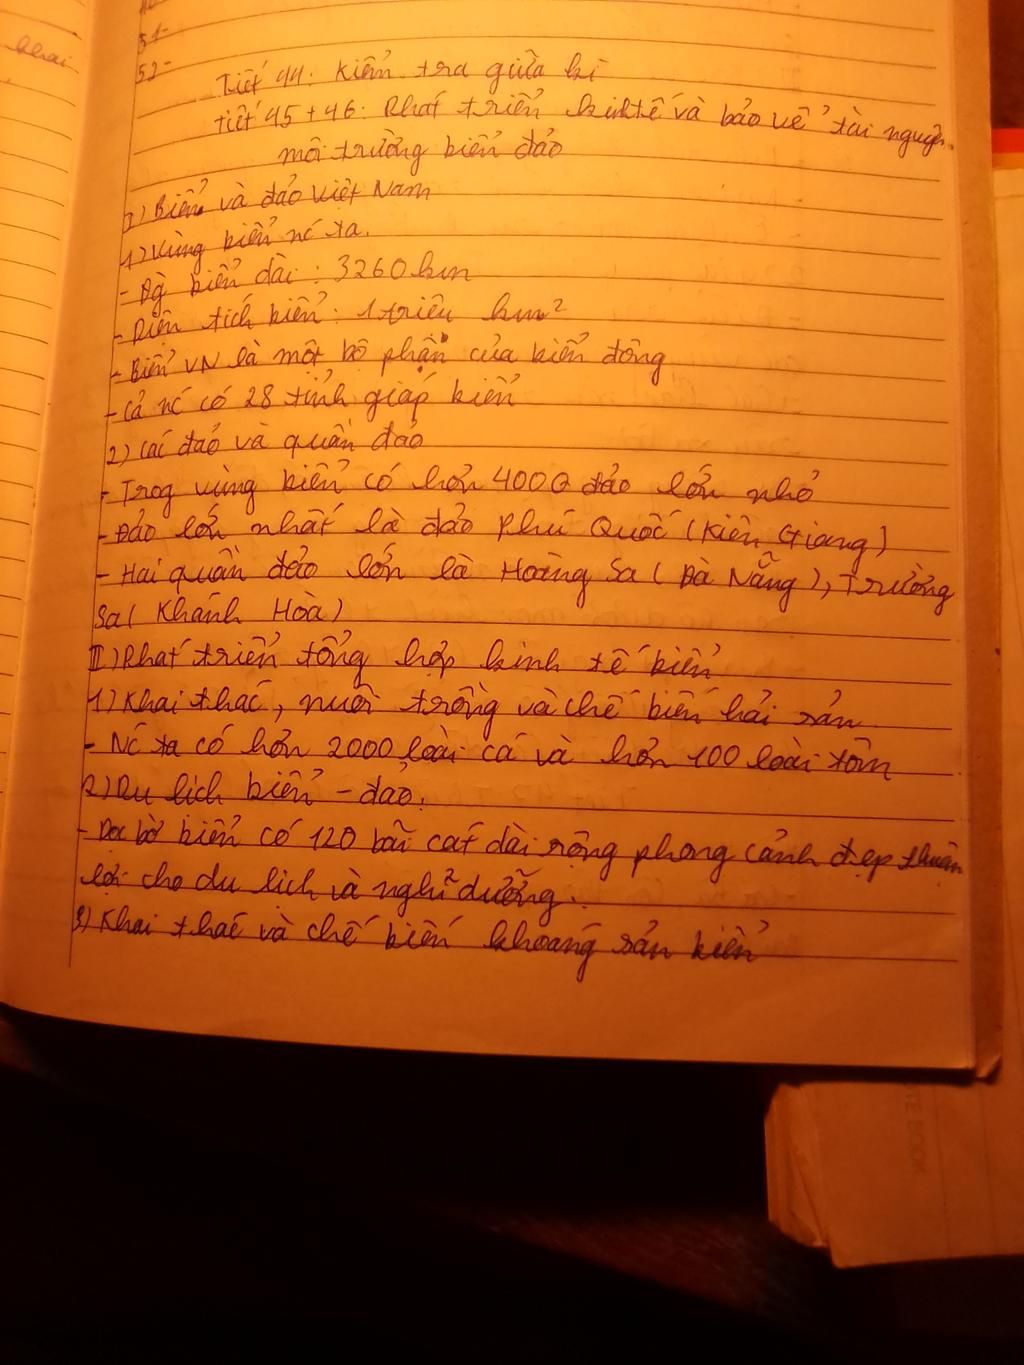 51-
52-
khai
Tiết 44: Kiểm tra giữa kì
tiết 45 + 46: Phát triển kinh tế và bảo vệ tài nguyên
môi trường biển đảo
I) Biển và đảo Việt Nam
1) Vùng biển nc ta.
- Bờ biển dài : 3260 km
- Diện tích biển : 1 triệu km²
- Biển VN là một bộ phận của biển đông
- Cả nc có 28 tỉnh giáp biển
2) Các đảo và quần đảo
- Trog vùng biển có hơn 4000 đảo lớn nhỏ
- Đảo lớn nhất là đảo Phú Quốc (Kiên Giang)
- Hai quần đảo lớn là Hoàng Sa (Đà Nẵng), Trường
Sa (Khánh Hòa)
II) Phát triển tổng hợp kinh tế biển
1) Khai thác, nuôi trồng và chế biến hải sản
- Nc ta có hơn 2000 loài cá và hơn 100 loài tôm
2) Du lịch biển - đảo.
- Dọc bờ biển có 120 bãi cát dài rộng phong cảnh đẹp thuận
lợi cho du lịch và nghỉ dưỡng.
3) Khai thác và chế biến khoáng sản biển
TE BOOK